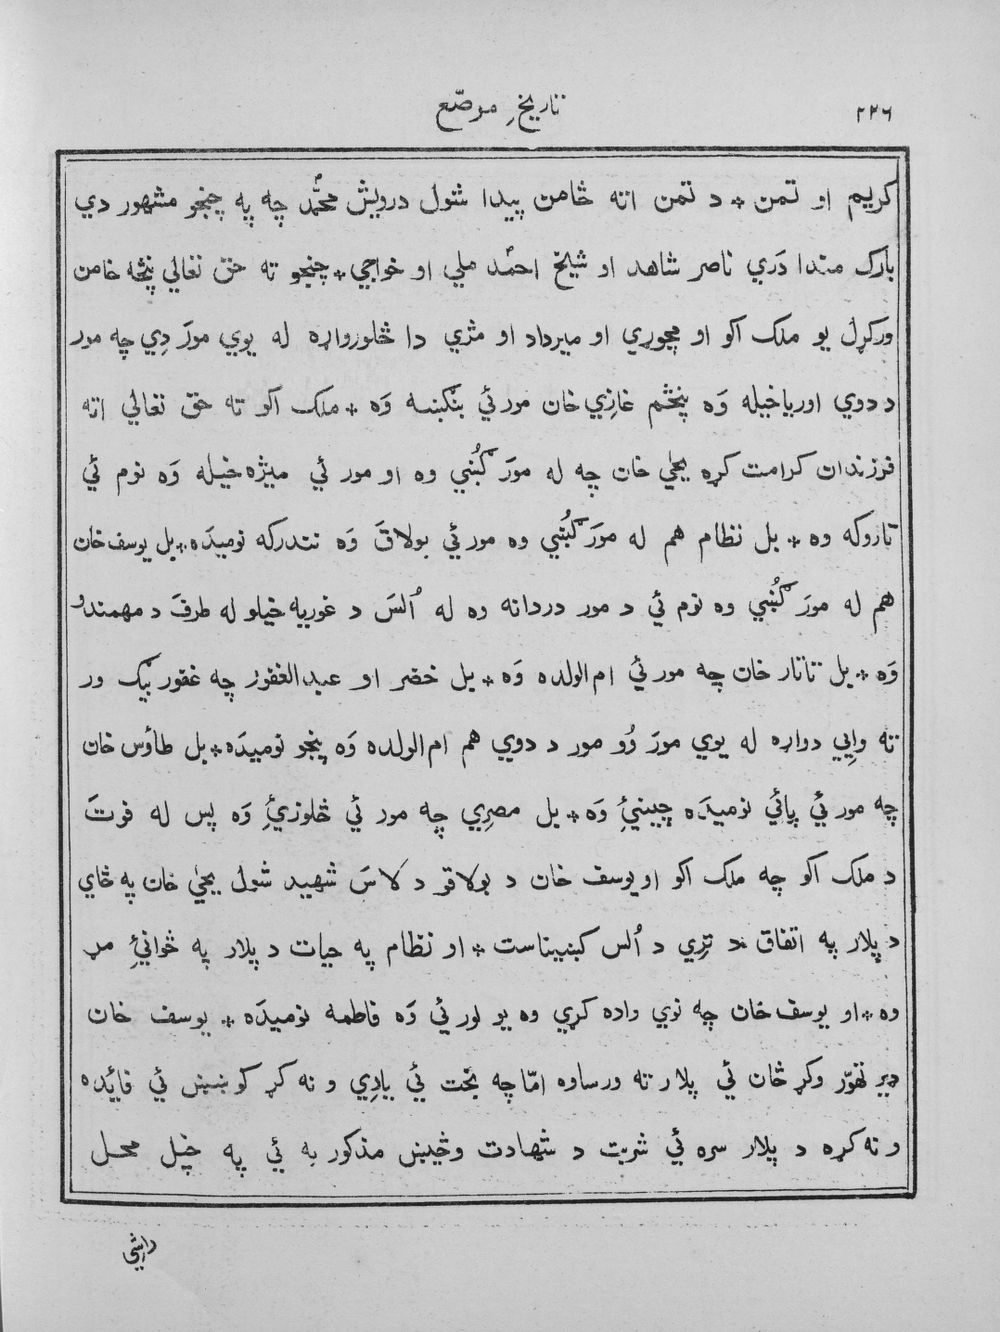 ۲۲۶
تاریخِ مرصّع
کریم او تمن * د تمن اته څامن پیدا شول درویش محمّد چه په چنجو مشهور دي
بارک مندا دَري ناصر شاهد او شیخ احمد ملي او خواجي * چنجو ته حق تعالي پنځه ځامن
ورکړل یو ملک اکو او میرداد او مټري دا څلورواړه له یوي مورَ دِي چه مور
د دوي اوریاخیله وَه پنځم غازي خان مورئي بنګښه وَه * ملک اکو ته حق تعالي اته
فرزندان کرامت کړه یحیٰ خان چه له مورَ وه او مور ئي میږه خیله وَه نوم ئي
تاروکه وه * بل نظام هم له مورَ وه مورئي بولاقَ وَه تتدرکه نومیدَه * بل یوسف خان
هم له مورَ وه نوم ئي د مور دردانه وه له اُلسَ د غوریه خیلو له طرفَ د مهمندُو
وَه * بل تاتار خان چه مورئي ام الولده وَه * بل خضر او عبد الغفور چه غفور بیک ور
ته وایِي دواړه له یوي مورَ وُو مور د دوي هم ام الولده وَه پنجو نومیدَه * بل طاؤس خان
چه مورئي پائي نومیدَه چینئِ وَه * بل مصرِي چه مور ئي څلوزئِ وَه پس له فوتَ
د ملک اکو چه ملک اکو او یوسف خان د بولاقو د لاسَ شهید شول یحیٰ خان په ځای
د پلار په اتفاق د ترِي د اُلس کښیناست * او نظام په حیات د پلار په ځوانئِ مړ
وه * او یوسف خان چه نوي واده کړي وه یو لورئي وَه فاطمه نومیدَه * یوسف خان
ډیر تهوّر وکړ ځان ئي پلار ته ورساوه امّا چه بخت ئي یادِي و نه کړ کوښښ ئي فائده
و نه کړه د پلار سره ئي شربت د شهادت وڅښن مذکور به ئي په خپل محل
داشي